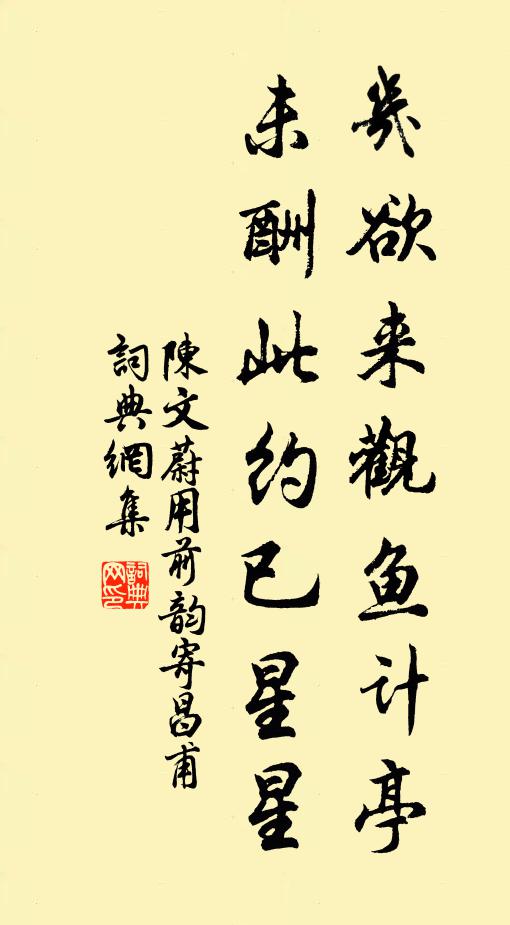 幾欲来觀鱼计亭
未酬此约已星星
陳文蔚用前韵寄昌甫
詞典網集
詞典网印